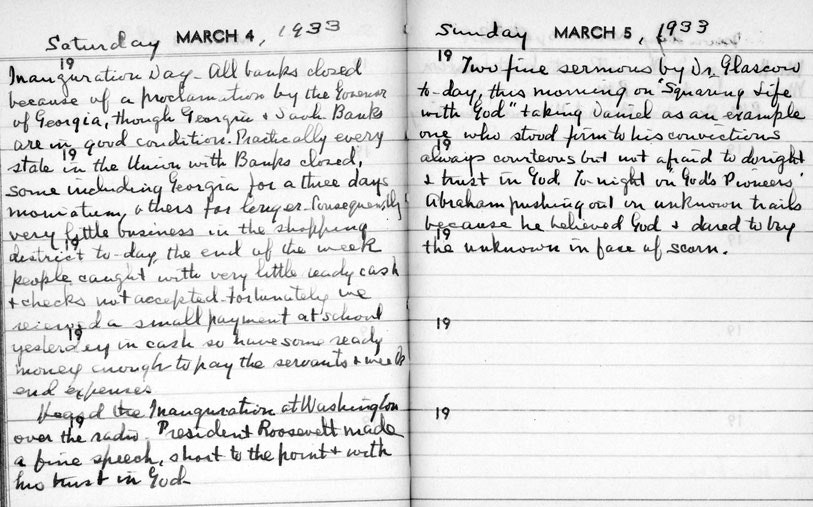 Saturday MARCH 4, 1933
19
Inauguration Day - All banks closed
because of a proclamation by the Governor
of Georgia, though Georgia & Sav'h Banks
are in good condition. Practically every
19
state in the Union with Banks closed,
some including Georgia for a three days
moritatum, others for longer. Consequently
very little business in the shopping
19
district to-day, the end of the week
people caught with very little ready cash
& checks not accepted. Fortunately we
received a small payment at school
19
yesterday in cash so have some ready
money enough to pay the servants & week
end expenses.
Heard the Inauguration at Washington
19
over the radio. President Roosevelt made
a fine speech, short to the point & with
his trust in God-
Sunday MARCH 5, 1933
19
Two fine sermons by Dr. Glascow
to-day, this morning on "Squaring Life
with God" & taking Daniel as an example
one who stood firm to his convictions
19
always courteous but not afraid to do right
& trust in God. To-night on "God's Pioneers"
Abraham pushing out in unknown trails
because he believed God & dared to try
19
the unknown in face of scorn.
19
19